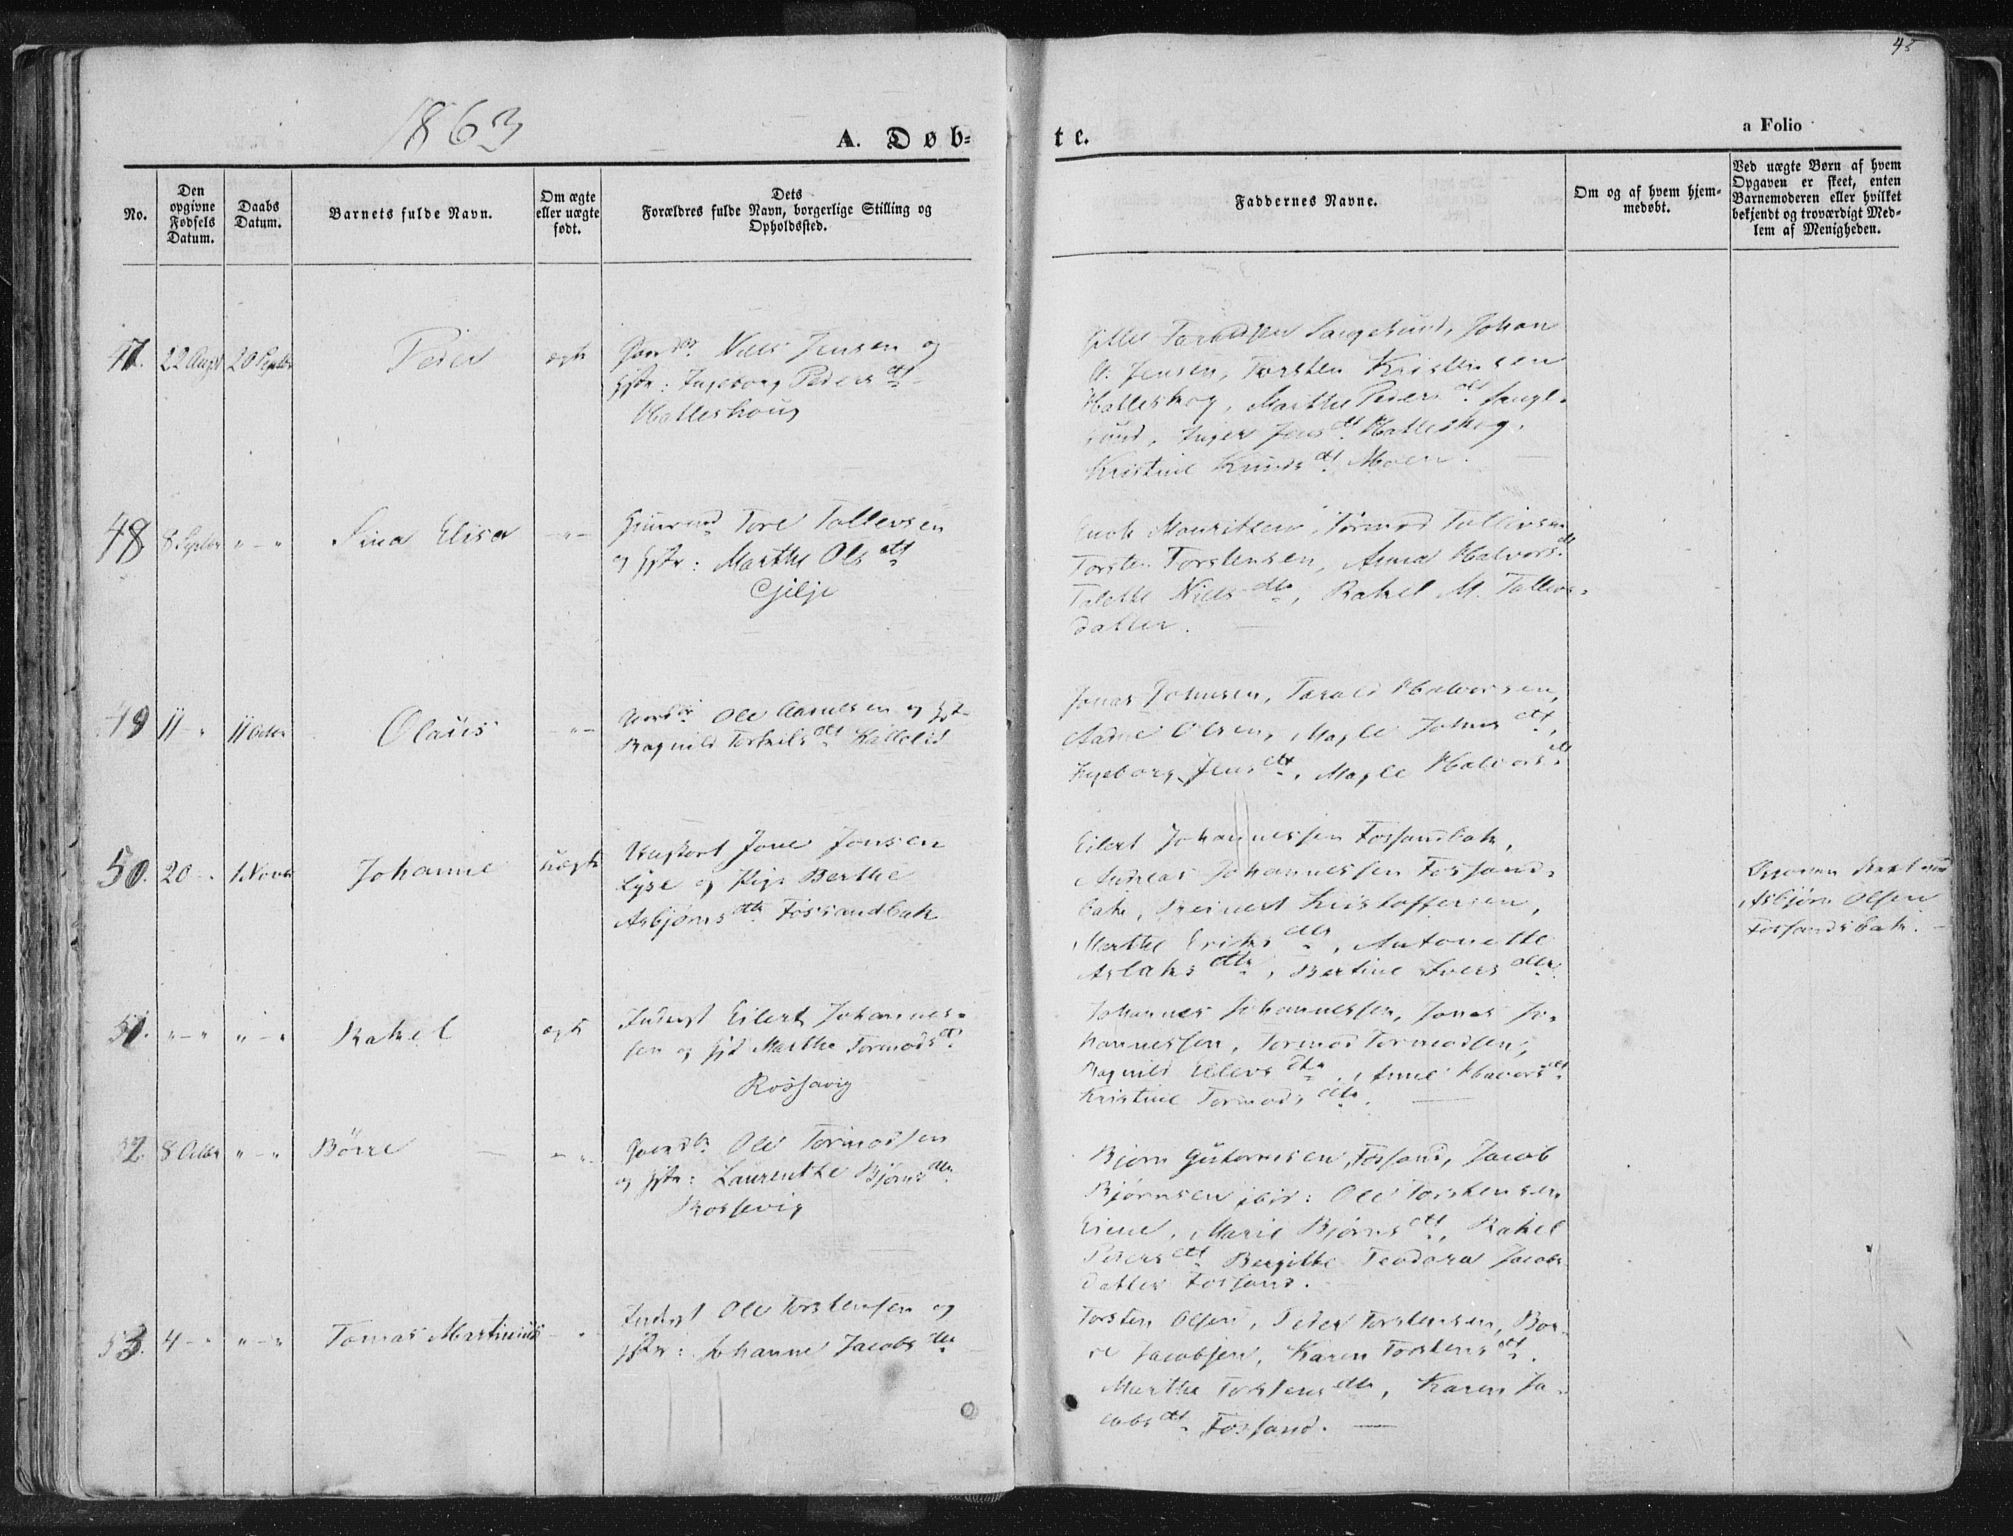 45
1863
A. Døb-
te.
a Folio
No.
Den opgivne Fødsels Datum.
Daabs Datum.
Barnets fulde Navn.
Om ægte eller uægte født.
Dets Forældres fulde Navn, borgerlige Stilling og Opholdssted.
Faddernes Navne.
Om og af hvem hjem-
medøbt.
Ved uægte Børn af hvem
Opgaven er skeet, enten
Barnemoderen eller hvilket
bekjendt og troværdigt Med-
lem af Menigheden.
47. 22 Aug 20 Septbr Peder ægte
Niels Jensen og
Ingeborg Peders dtr
Halleskoug
Jensen, Torsten Kristensen
Halleskog, Marthe Peders dtr
Inger Jens dtr Halleskog,
Kristine Knuds dtr Moen.
48 8 Septbr " - " Sina Elisa - " -
Tore Tollevsen
og Hstr: Marthe Ols dtr
Gilje
Enok Mouritsen, Tormod Tollevsen
Torsten Torstensen, Anna Halvors dtr
Niels dtr, Rakel M. Tollevs-
datter.
49 11 - " 11 Octbr Olaus - " -
Ole Aanensen og
Ragnild Torkils dtr
Jonas Johnsen, Tarald Halvorsen,
Aadne Olsen, Magle Johns dtr,
Ingeborg Jens dtr, Magle Halvors dtr
50. 20 - " 1 Novbr Johanne uægte
Ungkarl Jone Jonsen
Lyse og Pige Berthe
Asbjørns dtr Fossandbak
Eilert Johannessen Fossandbak,
Andreas Johannessen Fossand-
bak, Reinert Kristoffersen,
Marthe Eriks dtr, Antonette
Aslaks dtr, Bertine Ivers dtr
Asbjørn Olsen
Fossandsbak.
51. " - " " - " Rakel ægte
Inderst Eilert Johannes-
sen og Marthe Tormods dtr
Rossavig
Johannes Johannessen, Jonas Jo-
hannessen, Tormod Tormodsen,
Ragnild Eilevs dtr, Anne Havors dtr
Kristine Tormods dtr.
52. 8 Octbr " - " Börre - " -
Ole Tormodsen
og Hstr: Laurentze Bjørns dtr
Rossevig
Bjørn Guttormsen, Fossand, Jacob
Bjørnsen ibid: Ole Torstensen
Eiene, Marie Bjørns dtr, Rakel
Peders dtr Bergitte Teodora Jacobs
datter Fossand.
53. 4 - " " - " Tomas Martinius - "
Inderst Ole Torstensen og
Hstr: Johanne Jacobs dtr
Torsten Olsen, Peder Torstensen, Bør-
re Jacobsen, Karen Torstens dtr.
Marthe Torstens dtr, Karen Ja-
cobs dtr Fossand.